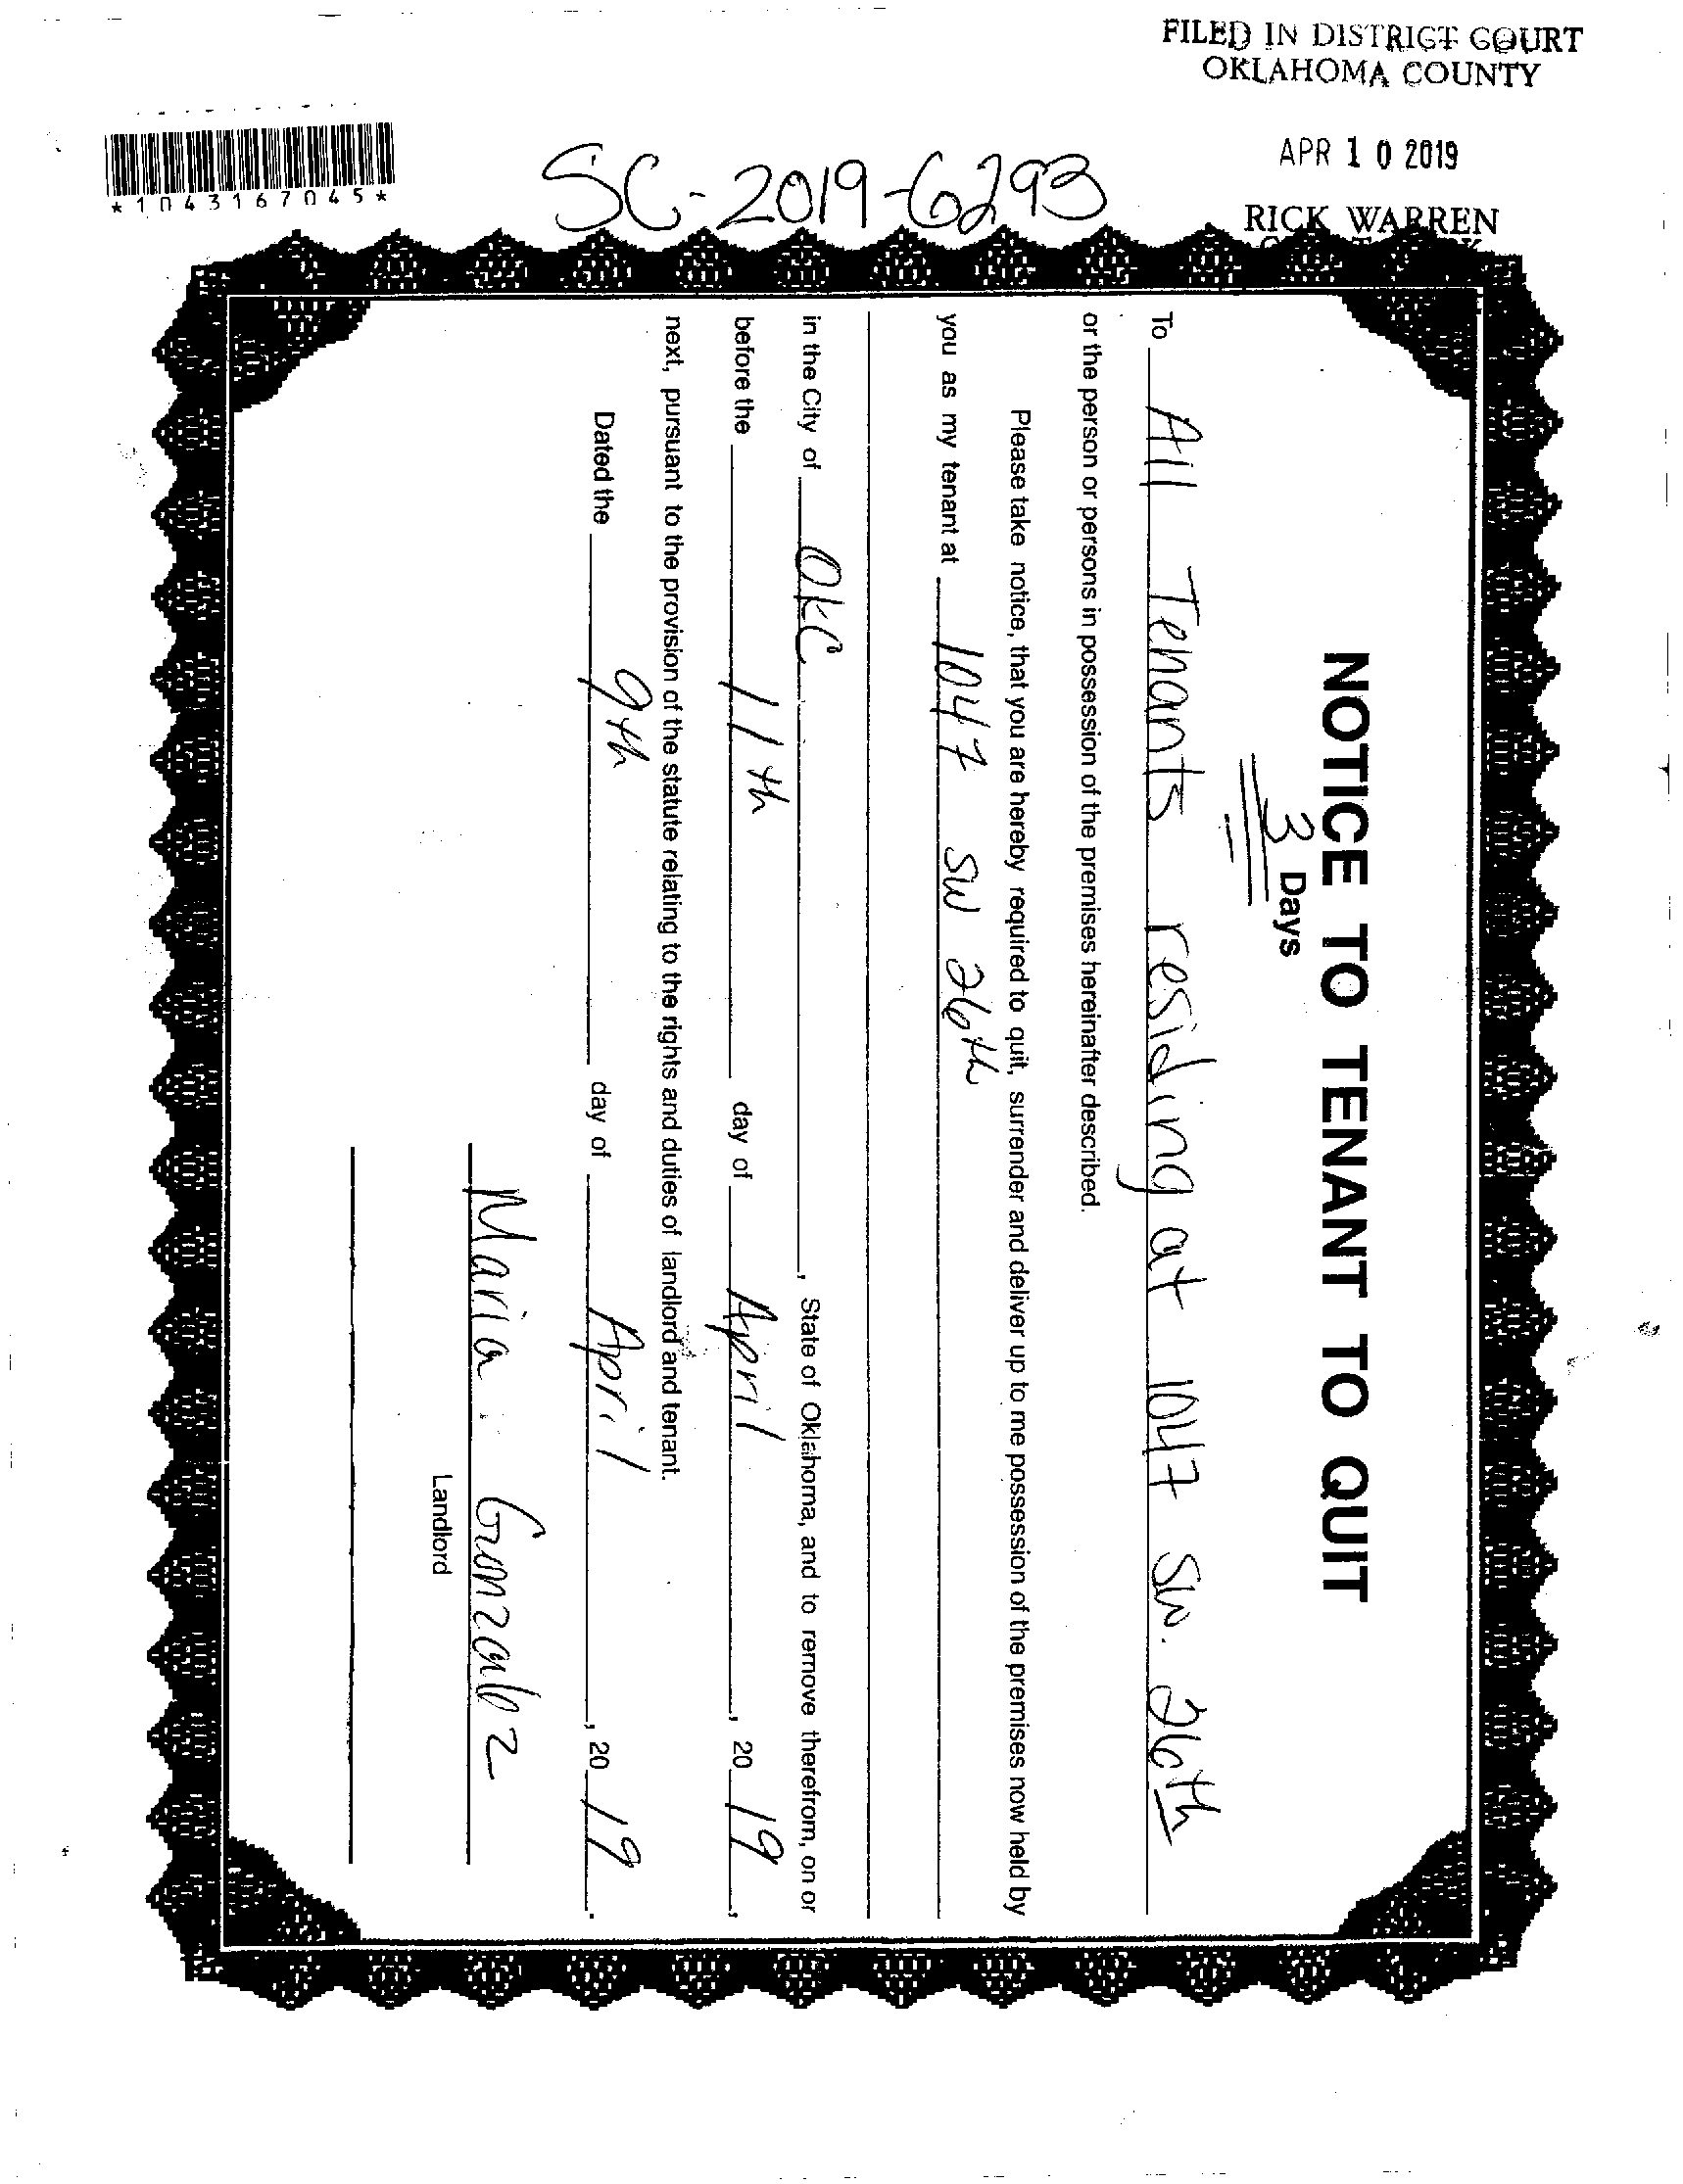 FILED IN DISTRICT COURT
OKLAHOMA COUNTY
APR 10 2019
RICK WARREN
*1043167045*
SC-2019-6293
NOTICE TO TENANT TO QUIT
3 Days
To All Tenants residing at 1047 SW. 26th
or the person or persons in possession of the premises hereinafter described.
Please take notice, that you are hereby required to quit, surrender and deliver up to me possession of the premises now held by
you as my tenant at 1047 SW 26th
in the City of OKC, State of Oklahoma, and to remove therefrom, on or
before the 11th day of April, 2019,
next, pursuant to the provision of the statute relating to the rights and duties of landlord and tenant.
Dated the 9th day of April, 2019.
Maria Gonzalez
Landlord